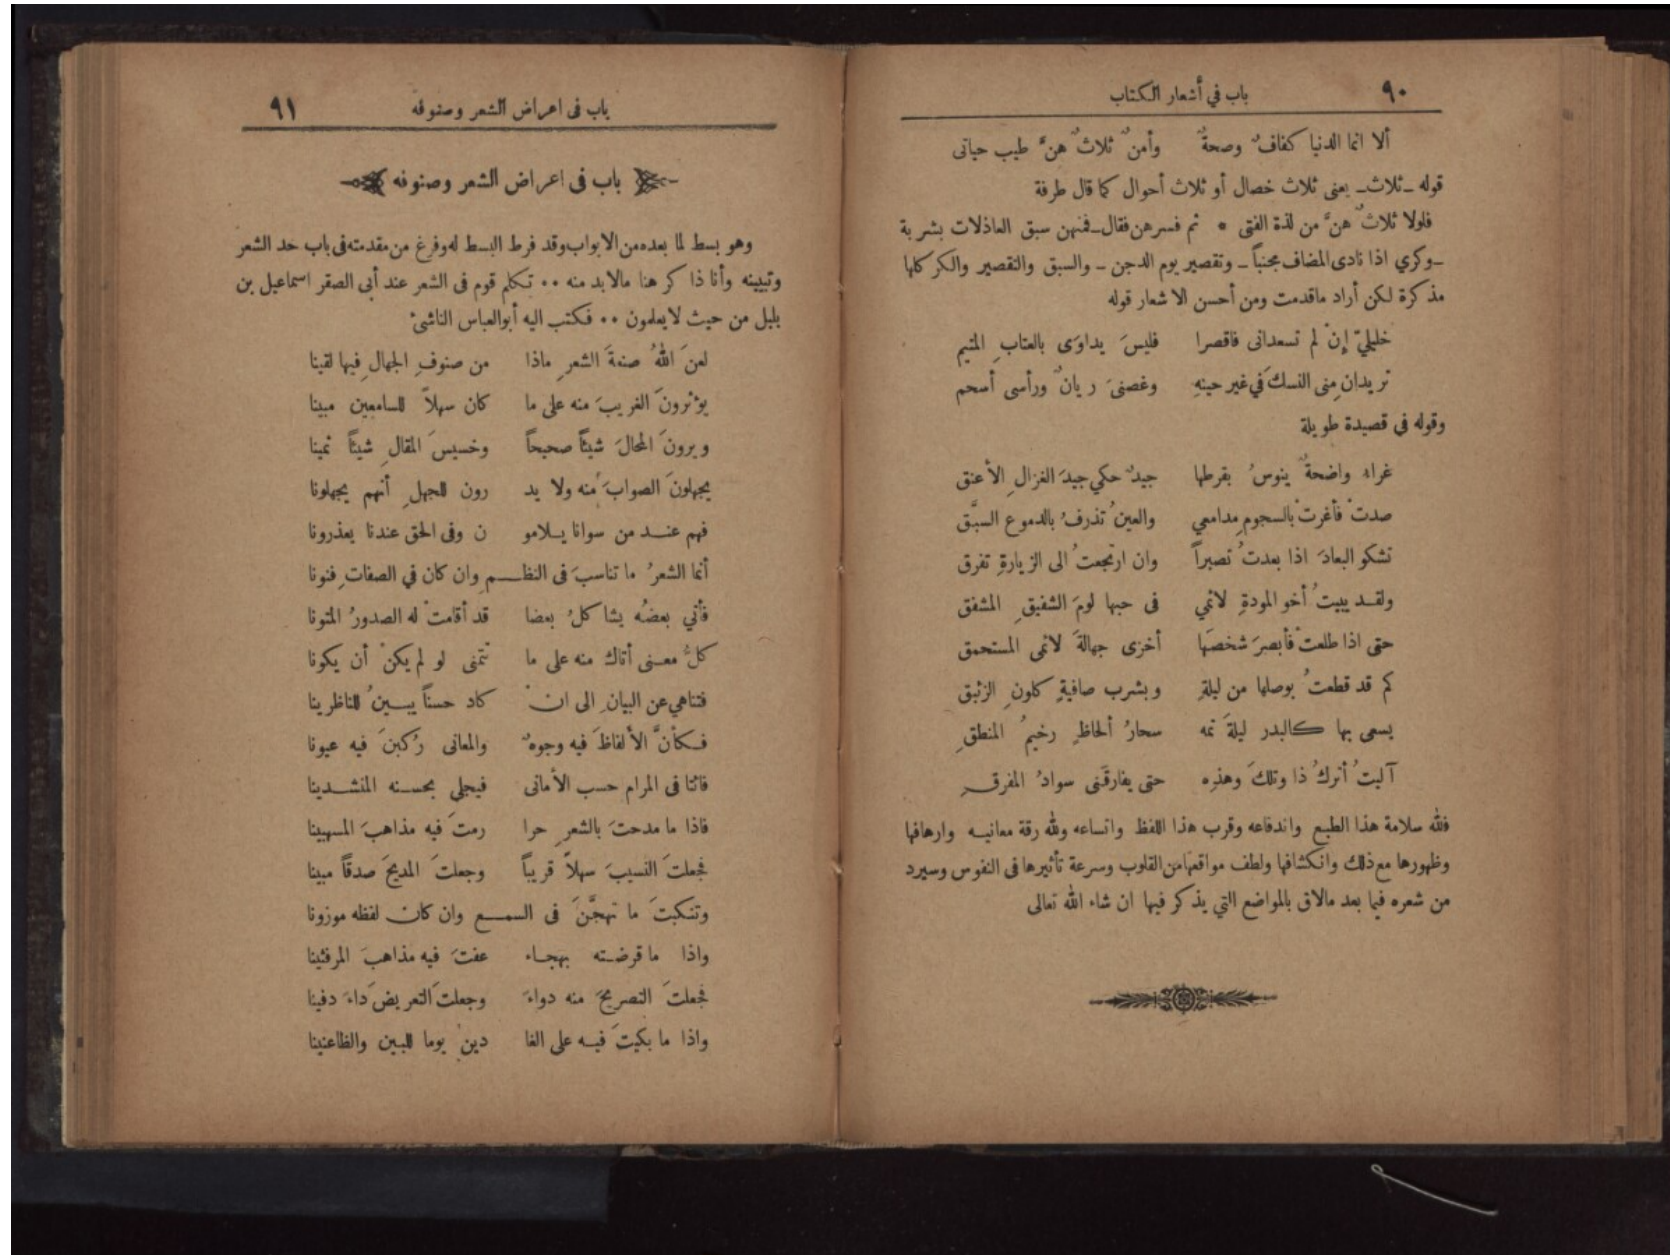 ٩٠
باب في أشعار الكتاب
ألا انما الدنيا كفافٌ وصحةٌ وأمنٌ ثلاثٌ هنَّ طيب حياتى
قوله ـ ثلاث ـ يعنى ثلاث خصال أو ثلاث أحوال كما قال طرفة
فلولا ثلاثٌ هنَّ من لذة الفتى * ثم فسرهن فقال ـ فمنهن سبق العاذلات بشربة
ـ وكري اذا نادى المضاف مجنباً ـ وتقصير يوم الدجن ـ والسبق والتقصير والكر كلها
مذكرة لكن أراد ماقدمت ومن أحسن الاشعار قوله
خليليّ إنْ لم تسعدانى فاقصرا فليسَ يداوَى بالعتابِ المتيم
تريدانِ منى النسكَ في غير حينهِ وغصنىَ ريانٌ ورأسى أسحم
وقوله في قصيدة طويلة
غراء واضحةٌ ينوسُ بقرطها جيدٌ حكي جيدَ الغزالِ الأعنق
صدتْ فأغرتْ بالسجومِ مدامعي والعينُ تذرفُ بالدموع السبَّق
تشكو البعادَ اذا بعدتُ تصبراً وان ارتجعتُ الى الزيارةِ تفرق
ولقد يبيتُ أخو المودةِ لائمي فى حبها لومَ الشفيقِ المشفق
حتى اذا طلعتْ فأبصرَ شخصَها أخزى جهالةَ لائمى المستحمق
كم قد قطعتُ بوصلها من ليلةِ وبشرب صافيةٍ كلونِ الزئبق
يسعى بها كالبدر ليلةَ تمه سحارُ ألحاظِ رخيمُ المنطقِ
آليتُ أتركُ ذا وتلكَ وهذِه حتى يفارقَنى سوادُ المفرقِ
فلله سلامة هذا الطبع واندفاعه وقرب هذا اللفظ واتساعه ولله رقة معانيه وارهافها
وظهورها مع ذلك وانكشافها ولطف مواقعها من القلوب وسرعة تأثيرها فى النفوس وسيرد
من شعره فيما بعد مالاق بالمواضع التي يذكر فيها ان شاء الله تعالى
باب فى اعراض الشعر وصنوفه
٩١
باب فى اعراض الشعر وصنوفه
وهو بسط لما بعده من الابواب وقد فرط البسط له وفرغ من مقدمته فى باب حد الشعر
وتبيينه وأنا ذاكر هنا مالابد منه ٠٠ تكلم قوم فى الشعر عند أبى الصقر اسماعيل بن
بلبل من حيث لايعلمون ٠٠ فكتب اليه أبوالعباس الناشئ
لعنَ اللهُ صنعةَ الشعرِ ماذا من صنوفِ الجهالِ فيها لقينا
يؤثرونَ الغريبَ منه على ما كان سهلاً للسامعين مبينا
ويرونَ المحالَ شيئاً صحيحاً وخسيسَ المقالِ شيئاً ثمينا
يجهلونَ الصوابَ منه ولا يد رون للجهلِ أنهم يجهلونا
فهم عند من سوانا يلامو ن وفى الحق عندنا يعذرونا
أنما الشعرُ ما تناسبَ فى النظم وان كان في الصفاتِ فنونا
فأتي بعضُه يشاكلُ بعضا قد أقامتْ له الصدورُ المتونا
كلُّ معنى أتاك منه على ما تتمنى لو لم يكنْ أن يكونا
فتناهي عن البيانِ الى انْ كاد حسناً يبينُ للناظرينا
فكأنَّ الألفاظَ فيه وجوهٌ والمعانى رُكبنَ فيه عيونا
فائتا فى المرام حسب الأمانى فيجلي بحسنه المنشدينا
فاذا ما مدحتَ بالشعرِ حرا رمتَ فيه مذاهبَ المسهبينا
فجعلتَ النسيبَ سهلاً قريباً وجعلتَ المديحَ صدقاً مبينا
وتنكبتَ ما تهجَّنَ فى السمع وان كان لفظه موزونا
واذا ما قرضته بهجاء عفتَ فيه مذاهبَ المرفثينا
فجعلتَ التصريحَ منه دواءَ وجعلتَ التعريضَ داءَ دفينا
واذا ما بكيتَ فيه على الغا دينَ يوما للبين والظاعنينا